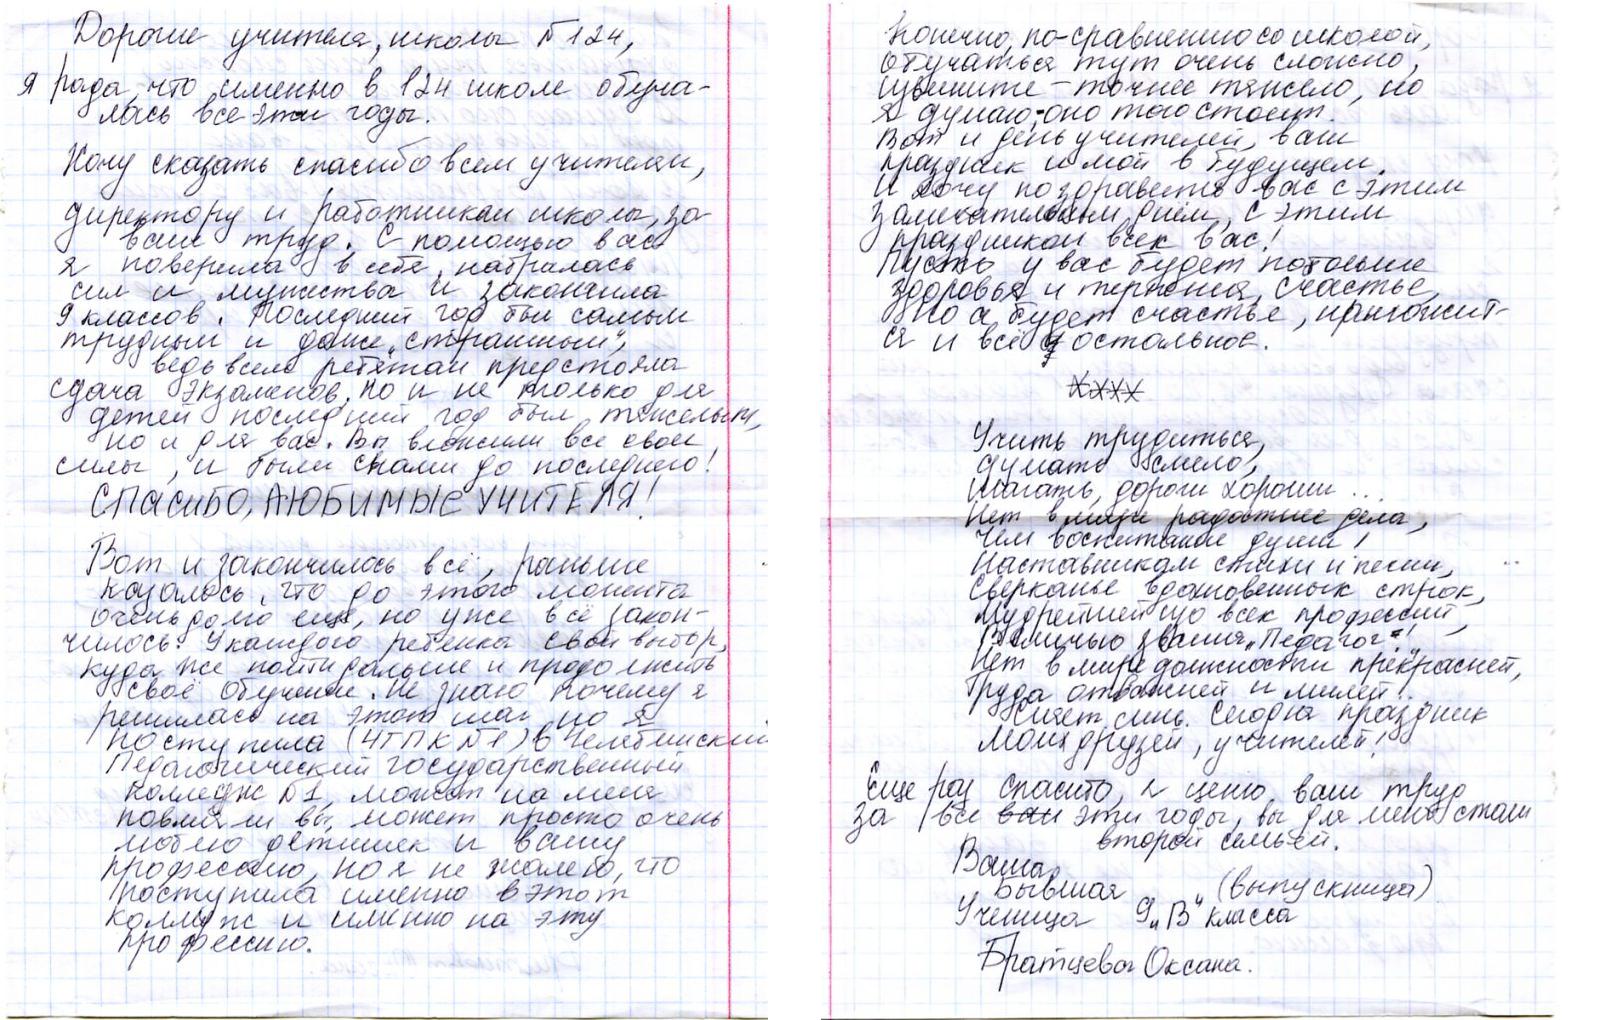 Дорогие учителя, школы №124,
я рада, что именно в 124 школе обуча-
лась все эти годы.
Хочу сказать спасибо всем учителям,
директору и работникам школы, за
ваш труд. С помощью вас
я поверила в себя, набралась
сил и мужества и закончила
9 классов. Последний год был самым
трудным и даже "страшным",
ведь всем ребятам предстояла
сдача экзаменов. Но и не только для
детей последний год был тяжелым,
но и для вас. Вы вложили все свои
силы, и были с нами до последнего!
СПАСИБО, ЛЮБИМЫЕ УЧИТЕЛЯ!
Вот и закончилось всё, раньше
казалось, что до этого момента
очень долго еще, но уже всё закон-
чилось. У каждого ребенка свой выбор,
куда же пойти дальше и продолжить
своё обучение. Не знаю почему я
решилась на этот шаг но я
поступила (ЧГПК №1) в Челябинский
Педагогический государственный
колледж №1, может на меня
повлияли вы, может просто очень
люблю детишек и вашу
профессию, но я не жалею, что
поступила именно в этот
колледж и именно на эту
профессию.
Конечно, по-сравнению со школой,
обучаться тут очень сложно,
извините – точнее тяжело, но
я думаю, оно того стоит.
Вот и день учителей, ваш
праздник и мой в будущем.
И хочу поздравить вас с этим
замечательным днём, с этим
праздником всех вас!
Пусть у вас будет побольше
здоровья и терпения, счастье,
ну а будет счастье, приложит-
ся и всё остальное.
хххх
Учить трудиться,
думать смело,
Шагать, дороги хороши...
Нет в мире радостнее дела,
Чем воспитание души!
Наставникам стихи и песни,
Сверканье вдохновенных строк,
Мудрейшей из всех профессий,
Величью звания "Педагог"!
Нет в мире должности прекрасней,
Труда отважней и милей!
Сияет синь. Сегодня праздник
Моих друзей, учителей!
Еще раз спасибо, я ценю ваш труд
за все эти годы, вы для меня стали
второй семьей.
Ваша
Бывшая (выпускница)
Ученица 9 "В" класса
Братцева Оксана.